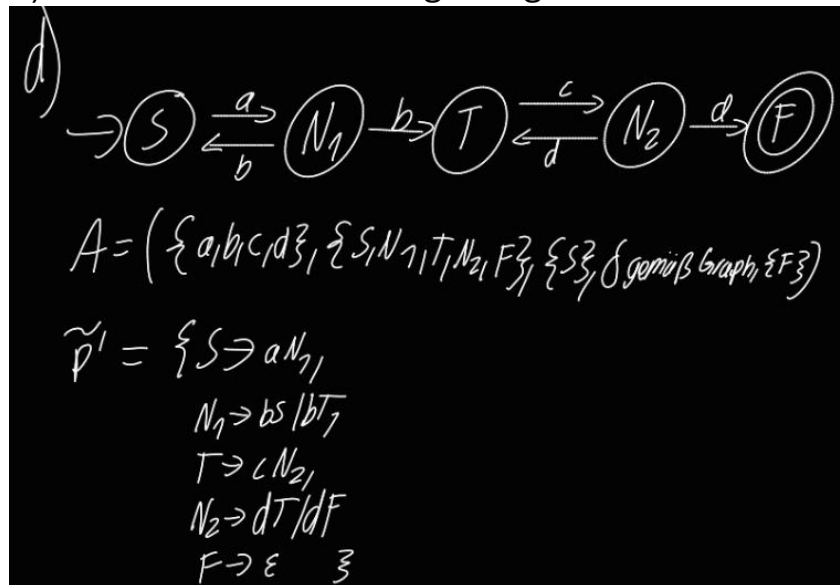 d)
→ S a N₁ b T c N₂ d F
b d
A = ( {a,b,c,d}, {S,N₁,T,N₂,F}, {S}, δ gemäß Graph, {F})
P̃' = { S → aN₁,
N₁ → bS / bT,
T → cN₂,
N₂ → dT / dF
F → ε }